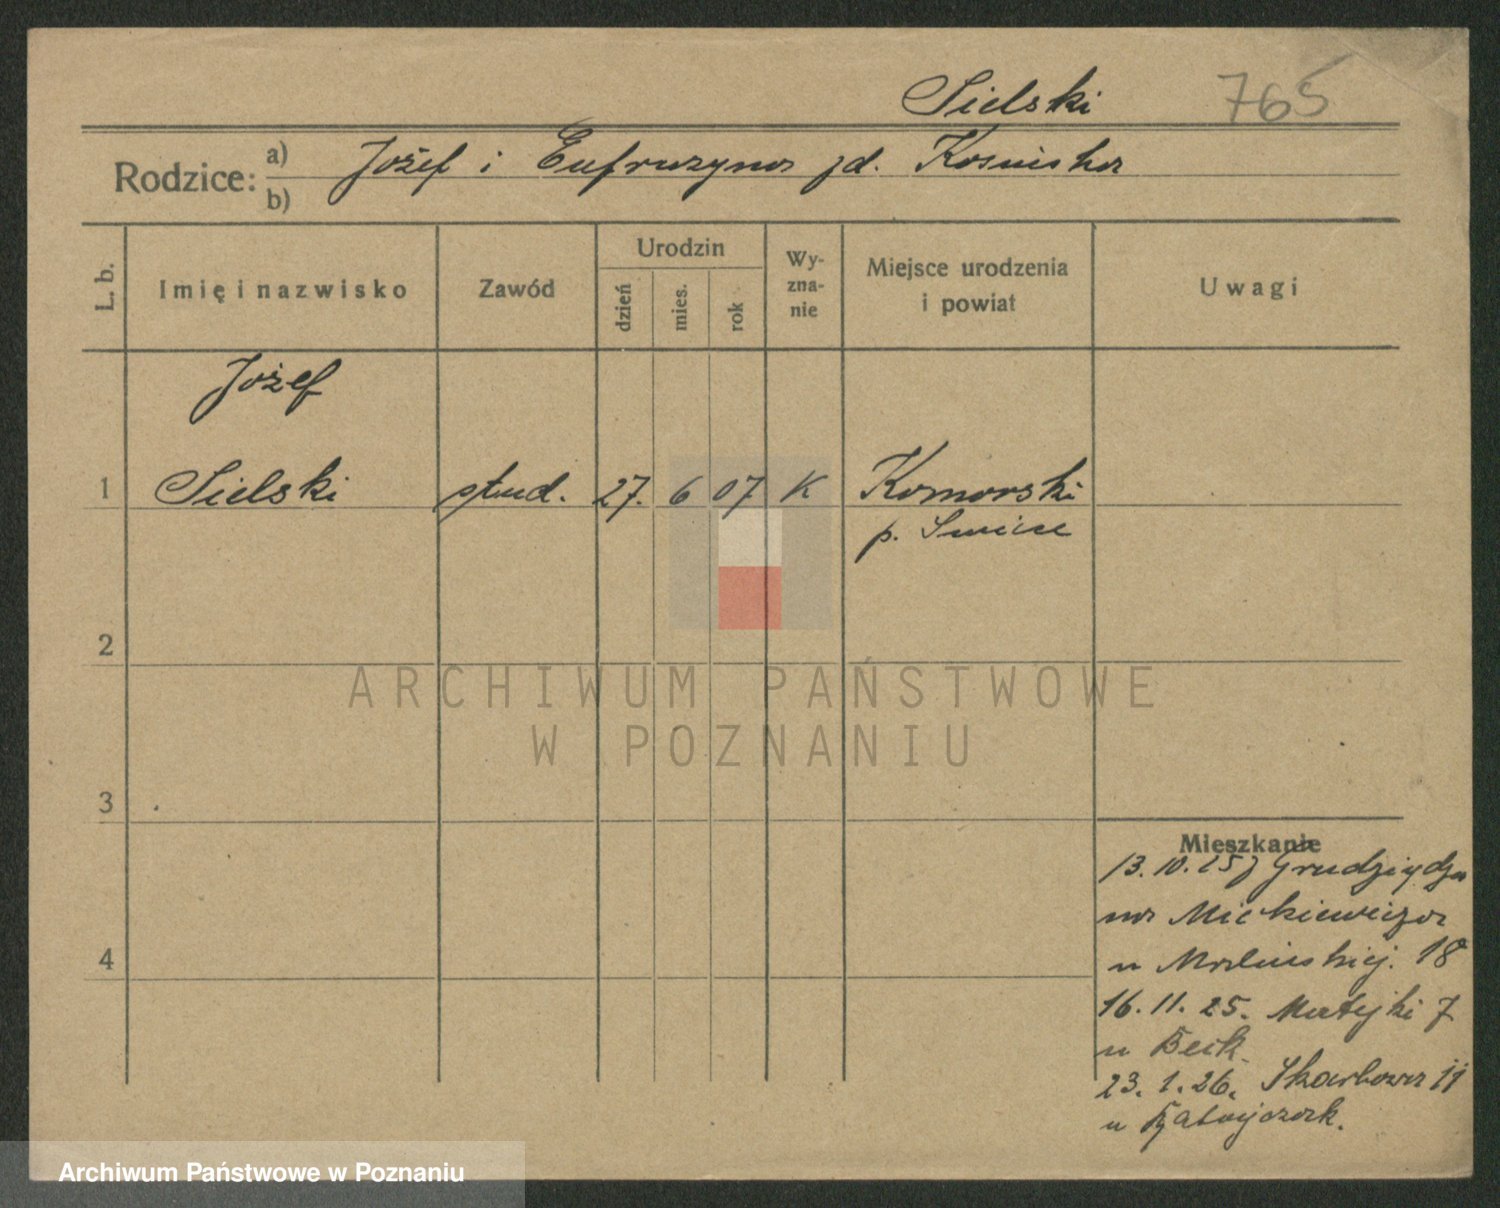 Sielski 765
Rodzice: a) Józef i Eufruzyna zd. Kosińska
b)
L. b. Imię i nazwisko Zawód Urodzin dzień mies. rok Wyznanie Miejsce urodzenia i powiat Uwagi
Józef
1 Sielski stud. 27. 6 07 K Komorski
p. Swiece
2
ARCHIWUM PAŃSTWOWE
W POZNANIU
3
Mieszkanie
13. 10. 25 z Grudziądza
na Mickiewicza
u 18
4
16. 11. 25. Matejki 7
u Beik
23. 1. 26. Skarbowa 11
u
Archiwum Państwowe w Poznaniu